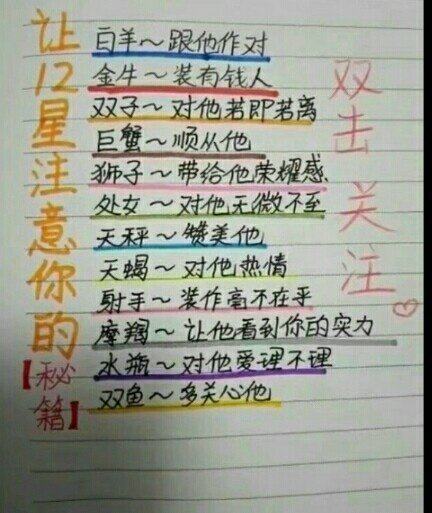 让12星注意你的
【秘籍】
白羊～跟他作对
金牛～装有钱人
双子～对他若即若离
巨蟹～顺从他
狮子～带给他荣耀感
处女～对他无微不至
天秤～赞美他
天蝎～对他热情
射手～装作毫不在乎
摩羯～让他看到你的实力
水瓶～对他爱理不理
双鱼～多关心他
双击关注